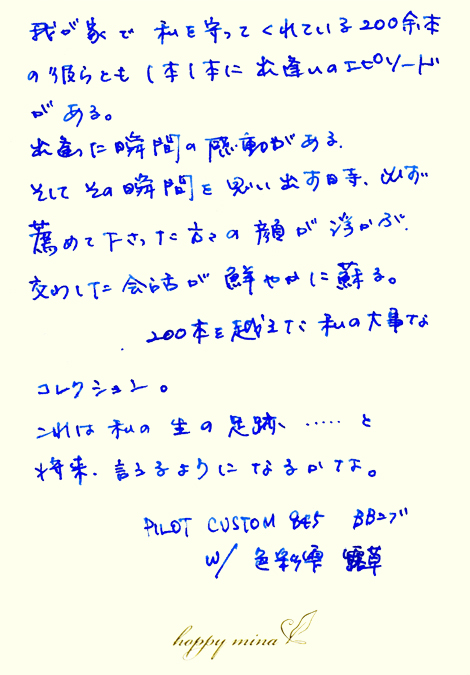 我が家で私を守ってくれている200余本
の彼らとも1本1本に出逢いのエピソード
がある。
出逢った瞬間の感動がある.
そして その瞬間を思い出す時、必ず
薦めて下さった方々の顔が浮かぶ.
交わした会話が鮮やかに蘇る。
200本を越えた私の大事な
コレクション。
これは私の生の足跡、……と
将来、言えるようになるかな。
PILOT CUSTOM 845 BBニブ
w/ 色彩雫 露草
happy mina